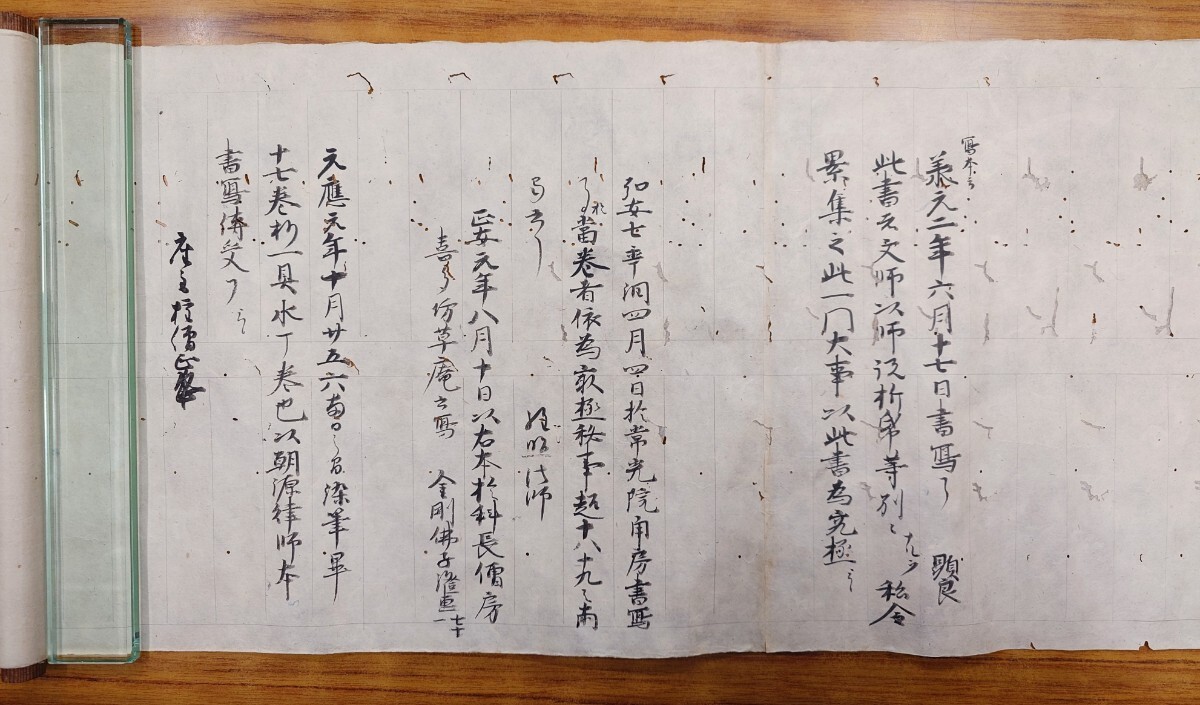 写本云
承元二年六月十七日書寫了 顕良
此書元文師以師説折帋等別々 私令
累集之此一門大事以此書為究極云々
弘安七年潤四月四日於常光院南房書寫
了當卷者依為最極秘事超十八十九之両
法師
正安元年八月十日以右本於科長僧房
草庵書寫 金剛佛子澄恵 七十一
元應元年十月廿五六両日之間染筆畢
十七卷抄一具水丁卷也以朝源律師本
書寫傳受了云々
座主権僧正